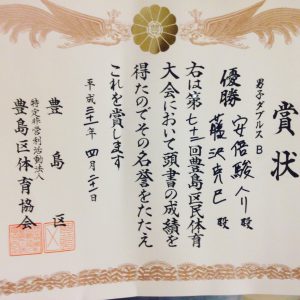 賞状
男子ダブルス B
優勝 安倍駿介 殿
沢克巳 殿
右は第七十三回豊島区民体育
大会において頭書の成績を
得たのでその名誉をたたえ
これを賞します
平成三十一年 四月二十一日
豊島区
特定非営利活動法人
豊島区体育協会